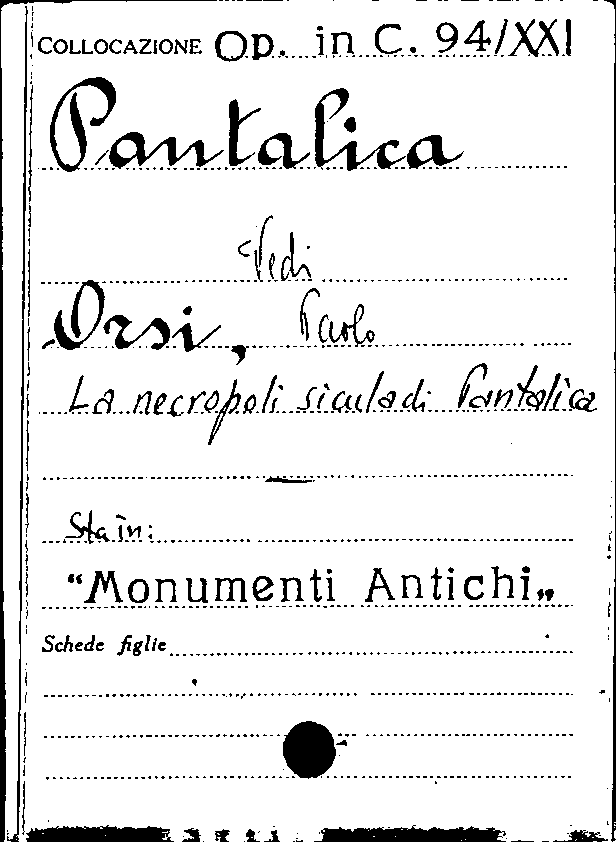 COLLOCAZIONE Op. in C. 94/XXI
Pantalica
Vedi
Orsi, Paolo
La necropoli sicula di Pantalica
Sta in:
"Monumenti Antichi„
Schede figlie